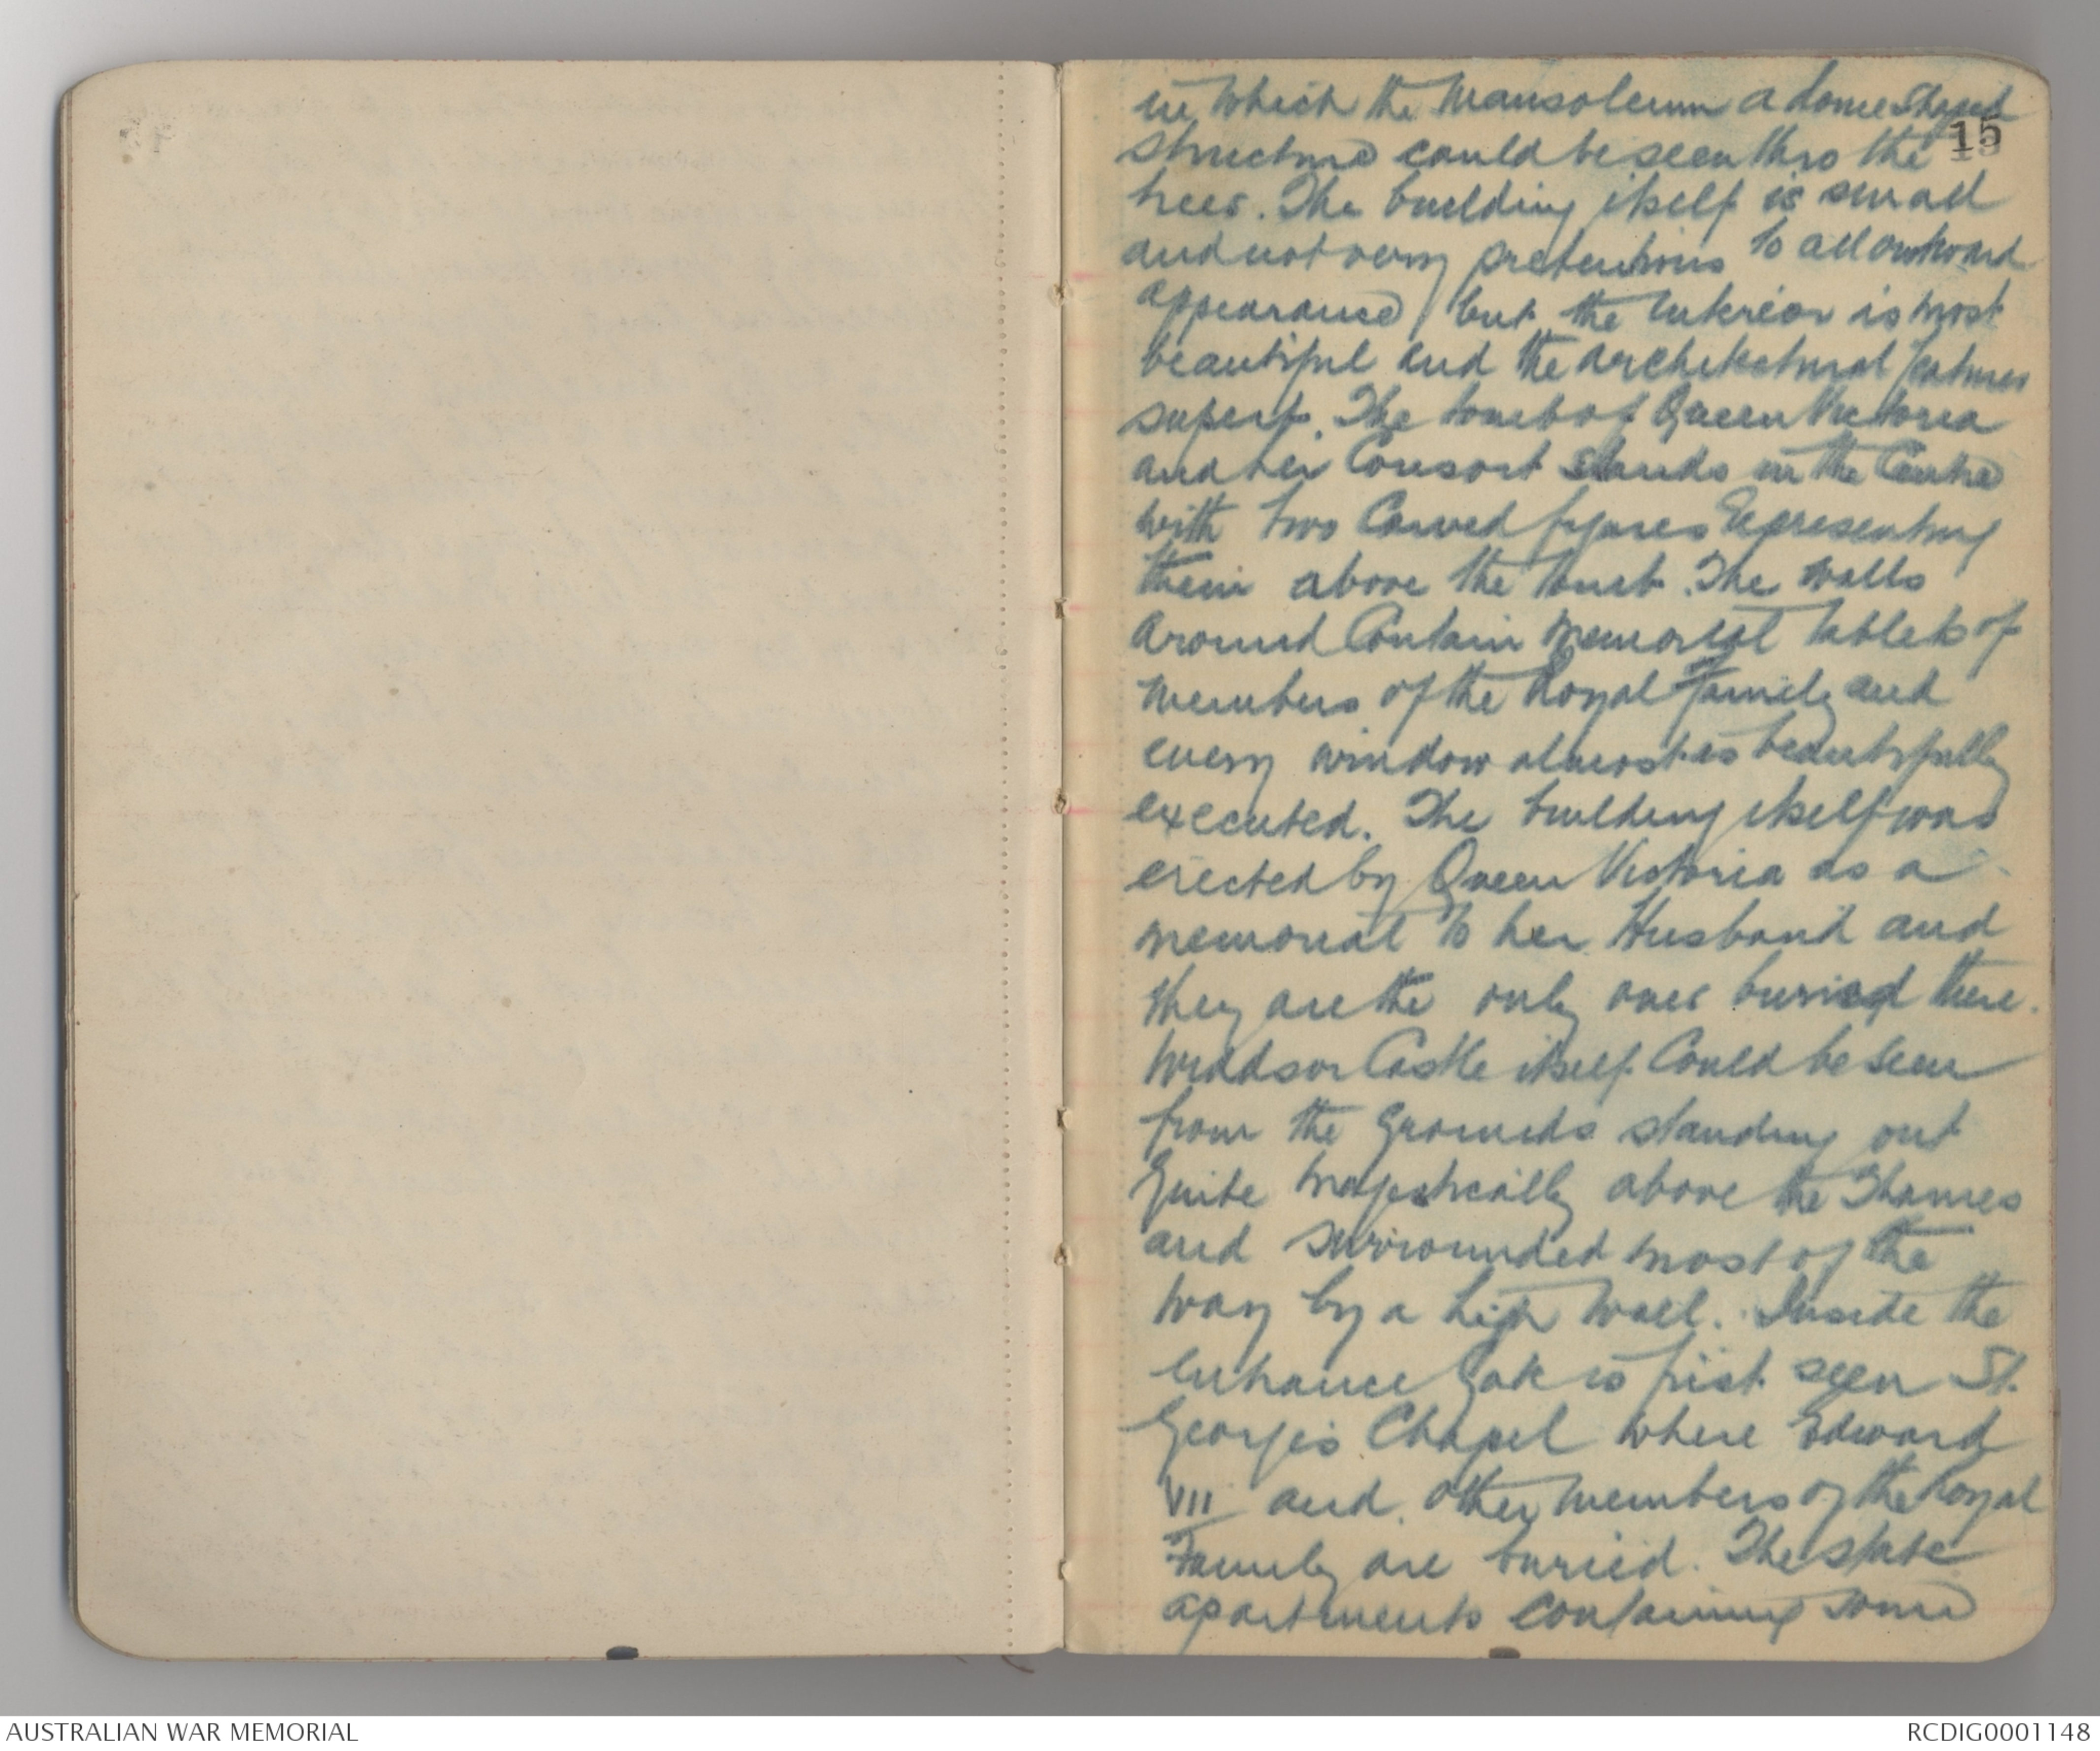 in which the Mausoleum a dome shaped
15
structure could be seen thro the
trees. The building itself is small
and not very pretentious to all outward
appearance, but the interior is most
beautiful and the architectural features
superb. The tomb of Queen Victoria
and her Consort stands in the Centre
with two Carved figures Representing
them above the tomb. The walls
around Contain Memorial tablets of
members of the Royal Family and
every window almost is beautifully
executed. The building itself was
erected by Queen Victoria as a
memorial to her Husband and
they are the only ones buried there.
Winddsor Castle itself Could be seen
from the Grounds standing out
Quite majestically above the Thames
and surrounded most of the
way by a high wall. Inside the
entrance Gate is first seen St.
George's Chapel where Edward
VII and other members of the Royal
Family are buried. The state
apartments containing some
AUSTRALIAN WAR MEMORIAL
RCDIG0001148